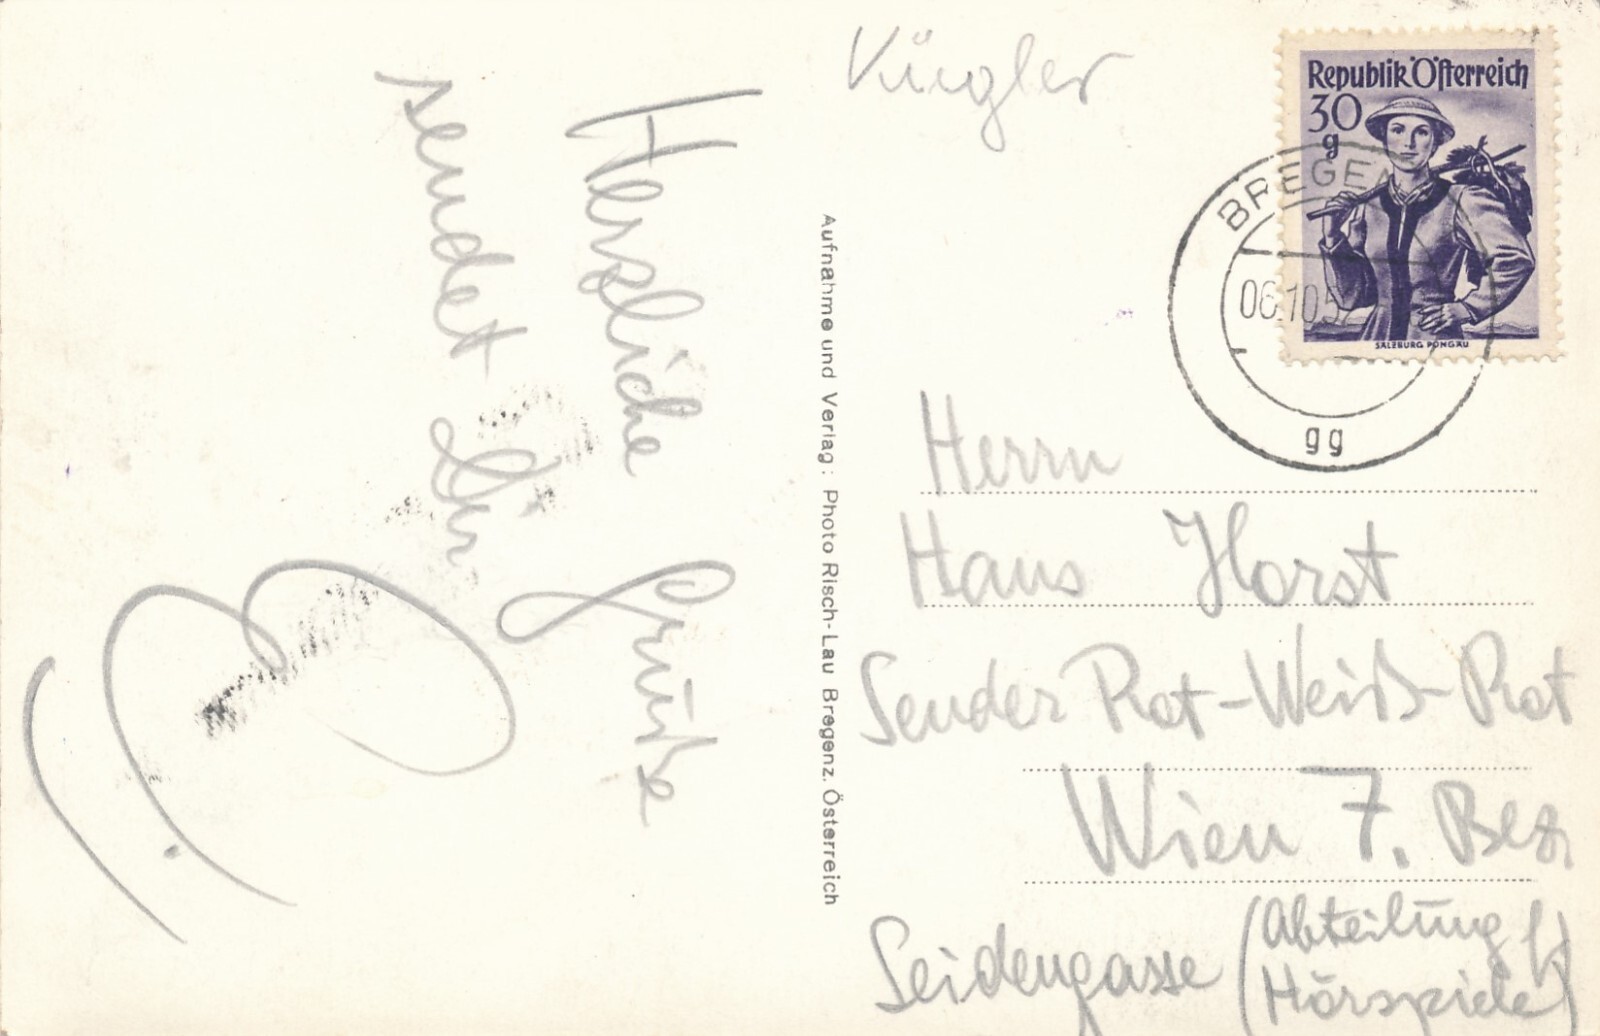 Herzliche Grüße
sendet Dir
Kügler
Republik Österreich
30
g
SALZBURG PONGAU
BREGEN
06.10.52
gg
Aufnahme und Verlag: Photo Risch-Lau Bregenz, Österreich
Herrn
Hans Horst
Sender Rot-Weiß-Rot
Wien 7. Bez
Seidengasse (Abteilung
Hörspiele)